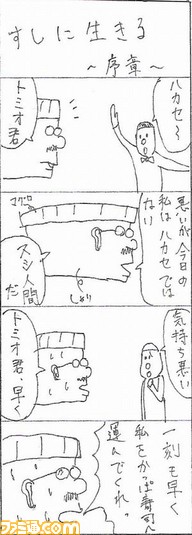 すしに生きる
～序章～
ハカセ～
トミオ君
悪いが今日の
私はハカセでは
ない
マグロ
しゃり
スシ人間
だ
気持ち悪い
トミオ君、早く
一刻も早く
私をかっぱ寿司へ
運んでくれ。
ファミ通.com